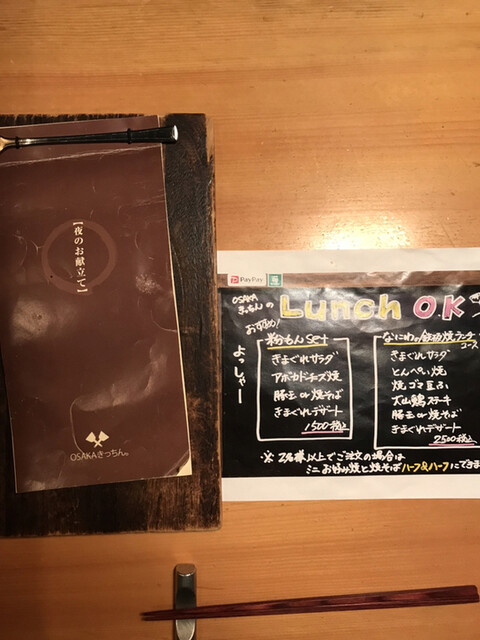 【夜のお献立て】
OSAKAきっちん。
PayPay
OSAKA
きっちんの
おすすめ!
Lunch OK
よっしゃー
粉もんset
きまぐれサラダ
アボカドチーズ焼
豚玉or焼そば
きまぐれデザート
1500税込
なにわの鉄板焼ランチ
コース
きまぐれサラダ
とんぺい焼
焼ゴマ豆ふ
大山鶏ステーキ
豚玉or焼そば
きまぐれデザート
2500税込
※ 2名様以上でご注文の場合は
ミニお好み焼と焼そばハーフ&ハーフにできま